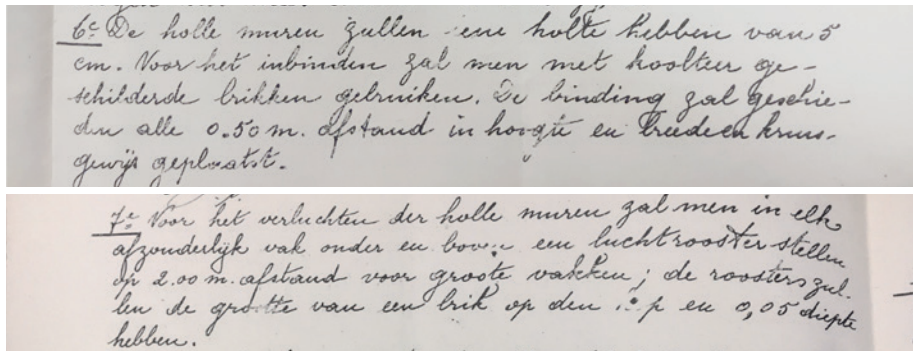 6e De holle muren zullen eene holte hebben van 5
cm. Voor het inbinden zal men met koolteer ge-
schilderde brikken gebruiken. De binding zal geschie-
den alle 0.50 m. afstand in hoogte en breede en kruis-
gewijs geplaatst.
7e Voor het verluchten der holle muren zal men in elk
afzonderlijk vak onder en boven een luchtrooster stellen
op 2.00 m. afstand voor groote vakken; de roosters zul-
len de grootte van een brik op den en 0,05 diepte
hebben.